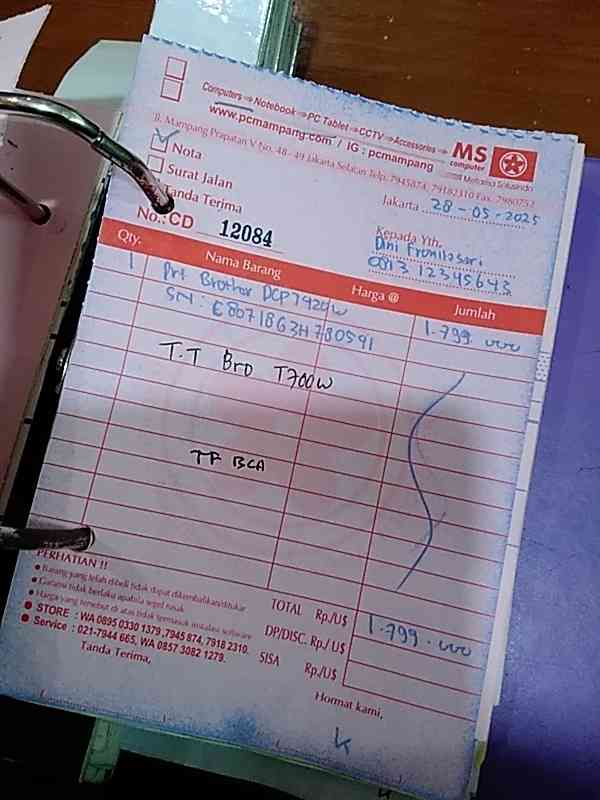 Computers ⇒ Notebook ⇒ PC Tablet ⇒ CCTV ⇒ Accessories ⇒
www.pcmampang.com / IG : pcmampang
MS
computer
Jl. Mampang Prapatan V No. 48 - 49 Jakarta Selatan Telp. 7945874, 79182310 Fax. 7980752
Nota
Surat Jalan
Tanda Terima
Jakarta 28-05-2025
Kepada Yth.
0813 12345643
No.: CD 12084
Qty. Nama Barang Harga @ Jumlah
1 Prt Brother DCP T420W 1.799.000
SN : E80718G3H780591
T.T Bro T700W
TF BCA
PERHATIAN !!
• Barang yang telah dibeli tidak dapat dikembalikan/ditukar
• Garansi tidak berlaku apabila segel rusak
• Harga yang tersebut di atas tidak termasuk instalasi software
• STORE : WA 0895 0330 1379, 7945 874, 7918 2310.
• Service : 021-7944 665, WA 0857 3082 1279.
TOTAL Rp./U$ 1.799.000
DP/DISC. Rp./U$
SISA Rp./U$
Tanda Terima,
Hormat kami,